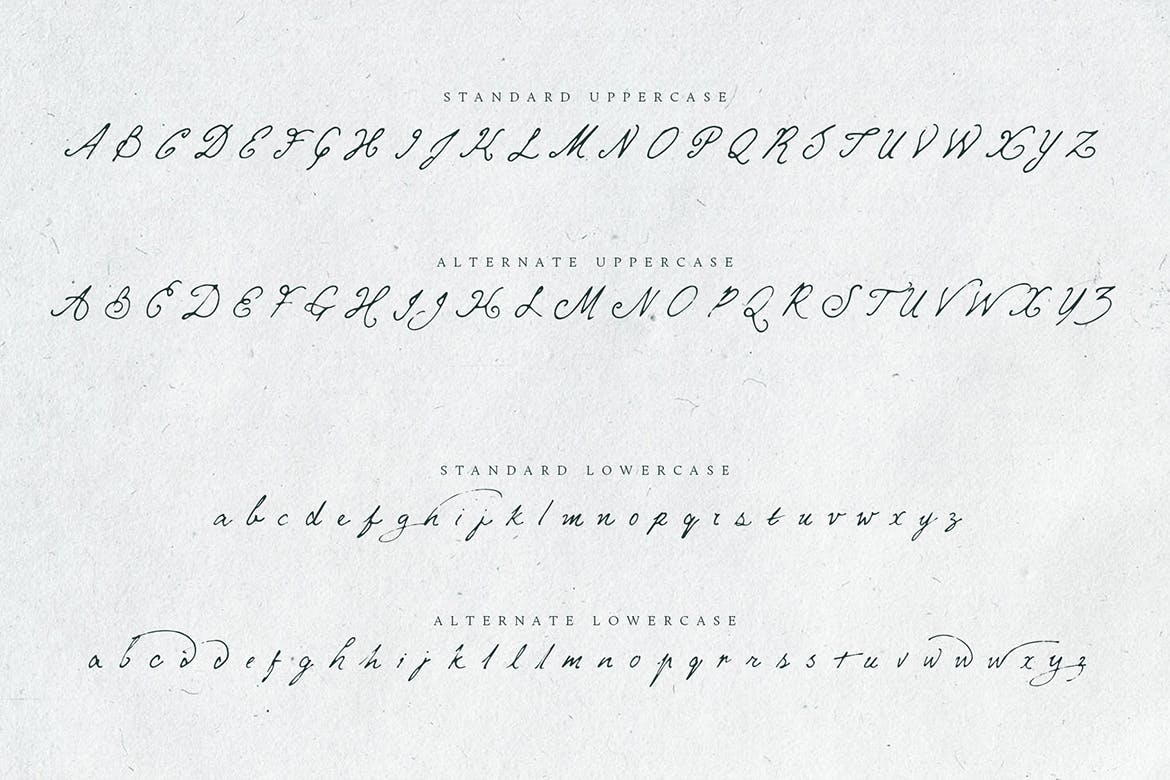 STANDARD UPPERCASE
A B C D E F G H I J K L M N O P Q R S T U V W X Y Z
ALTERNATE UPPERCASE
A B C D E F G H I J K L M N O P Q R S T U V W X Y Z
STANDARD LOWERCASE
a b c d e f g h i j k l m n o p q r s t u v w x y z
ALTERNATE LOWERCASE
a b c d d e f g h h i j k l l l m n o p q r r s s t u v w w w x y z